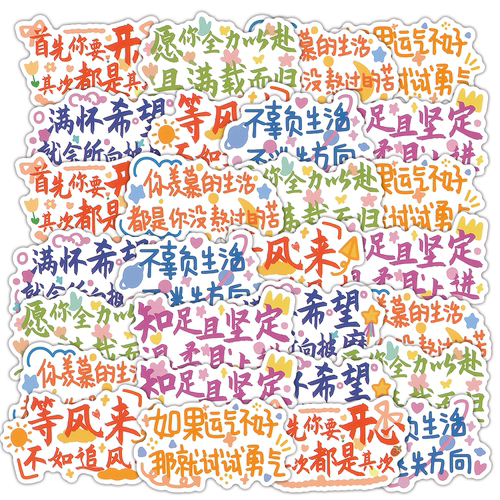 首先你要开
其次都是其
愿你全力以赴
且满载而归
慕的生活
没熬过的苦
果运气不好
试试勇气
满怀希望
就会所向披
等风
不如
不辜负生活
不迷失方向
足且坚定
且上进
首先你要开
其次都是
你羡慕的生活
都是你没熬过的苦
全力以赴
满载而归
果运气不好
试试勇气
满怀希望
就会所向披
不辜负生活
不迷失方向
风来
足且坚定
柔且上进
愿你全
知足且坚定
温柔且上进
希望
向披靡
慕的生活
你羡慕的生活
知足且坚定
希望
全力以赴
载而归
等风来
不如追风
如果运气不好
那就试试勇气
先你要开心
次都是其次
负生活
失方向